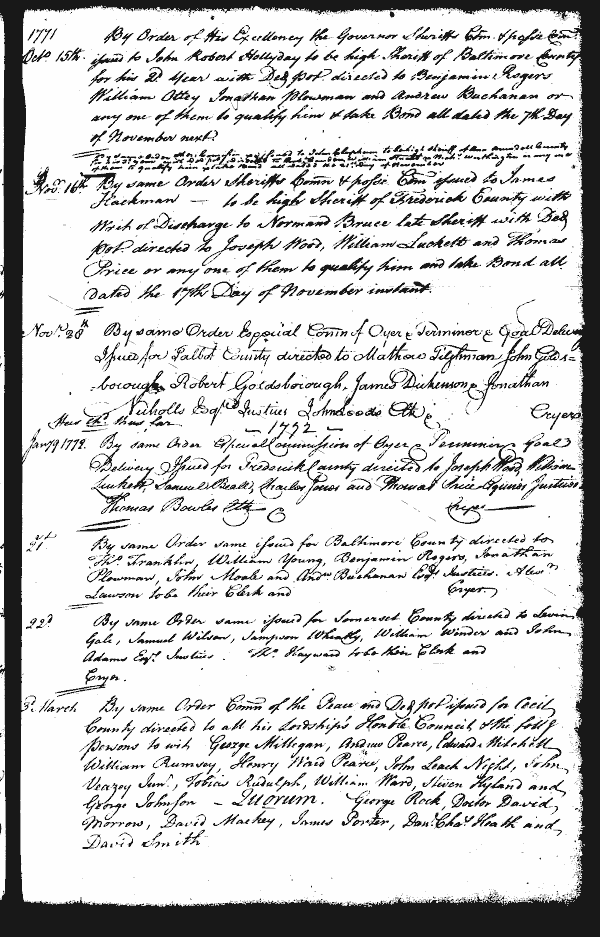 1771
Octo. 15th. By Order of His Excellency the Governor Sheriffs Com. & posse Com.
issued to John Robert Hollyday to be high Sheriff of Baltimore County
for his 2d Year with Ded. pot. directed to Benjamin Rogers
William Ottey Jonathan Plowman and Andrew Buchanan or
any one of them to qualify him & take Bond all dated the 7th. Day
of November next.
Novr. 16th By same Order Sheriffs Comn. & posse Com. issued to James
Hackman — to be high Sheriff of Frederick County with
Writ of Discharge to Normand Bruce late Sheriff with Ded.
pot. directed to Joseph Wood, William Luckett and Thomas
Price or any one of them to qualify him and take Bond all
dated the 17th Day of November instant.
Novr. 28th By same Order Especial Comn. of Oyer & Terminer & Goal Delivery
Issued for Talbot County directed to Mathew Tilghman John Golds=
borough, Robert Goldsborough, James Dickenson & Jonathan
Nicholls Esqrs. Justices John Clk. & Cryer
thus far
— 1772 —
Jany 9 1772. By same Order Especial Commission of Oyer & Terminer & Goal
Delivery Issued for Frederick County directed to Joseph Wood, William
Luckett, Samuel Beall, Charles Jones and Thomas Price Esquires Justices
Thomas Bowles Clk. & Cryer
21st By same Order same issued for Baltimore County directed to
Thos. Franklin, William Young, Benjamin Rogers, Jonathan
Plowman, John Moale and Andw. Buchanan Esqrs. Justices. Alexr.
Lawson to be their Clerk and Cryer
22d By same Order same issued for Somerset County directed to Levin
Gale, Samuel Wilson, Sampson Wheatly, William Winder and John
Adams Esqrs. Justices. Thos. Hayward to be their Clerk and
Cryer.
3d. March By same Order Comn. of the Peace and Ded. pot. issued for Cecil
County directed to all his Lordship's Honble Council, & the follg.
persons to wit George Milligan, Andrew Pearce, Edward Mitchell
William Rumsey, Henry Ward Pearce, John Leach Night, John
Veazey Junr., Tobias Rudulph, William Ward, Steven Hyland and
George Johnson — Quorum. George Rock, Doctor David
Morrow, David Mackey, James Porter, Danl. Chas. Heath and
David Smith